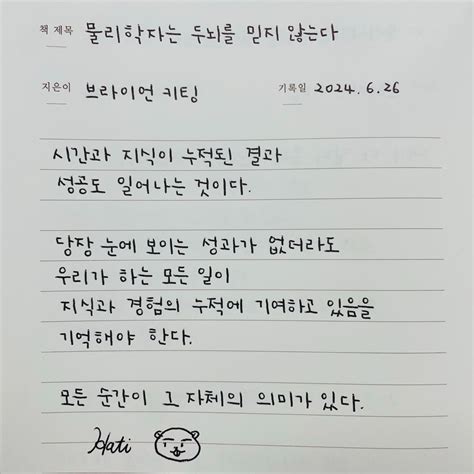 책 제목 물리학자는 두뇌를 믿지 않는다
지은이 브라이언 키팅 기록일 2024.6.26
시간과 지식이 누적된 결과
성공도 일어나는 것이다.
당장 눈에 보이는 성과가 없더라도
우리가 하는 모든 일이
지식과 경험의 누적에 기여하고 있음을
기억해야 한다.
모든 순간이 그 자체의 의미가 있다.
Hati